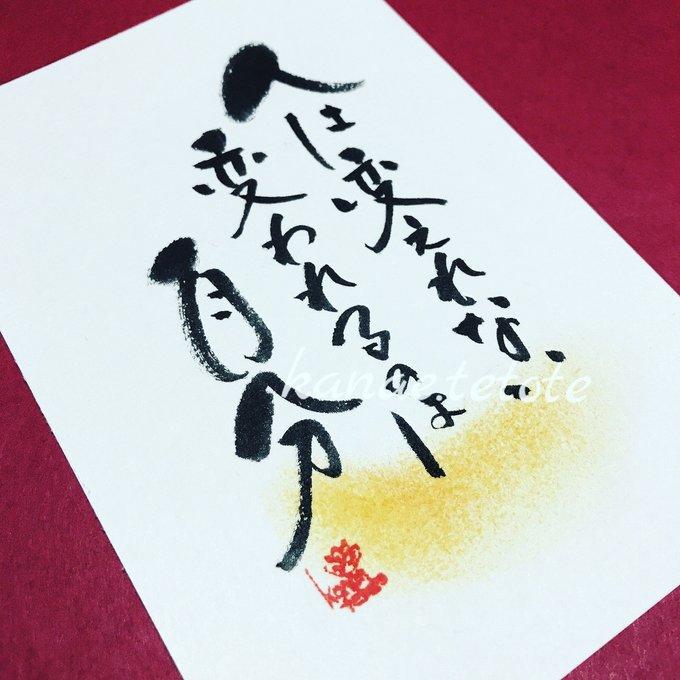 人は変えれない
変われるのは
自分
kanaetetote